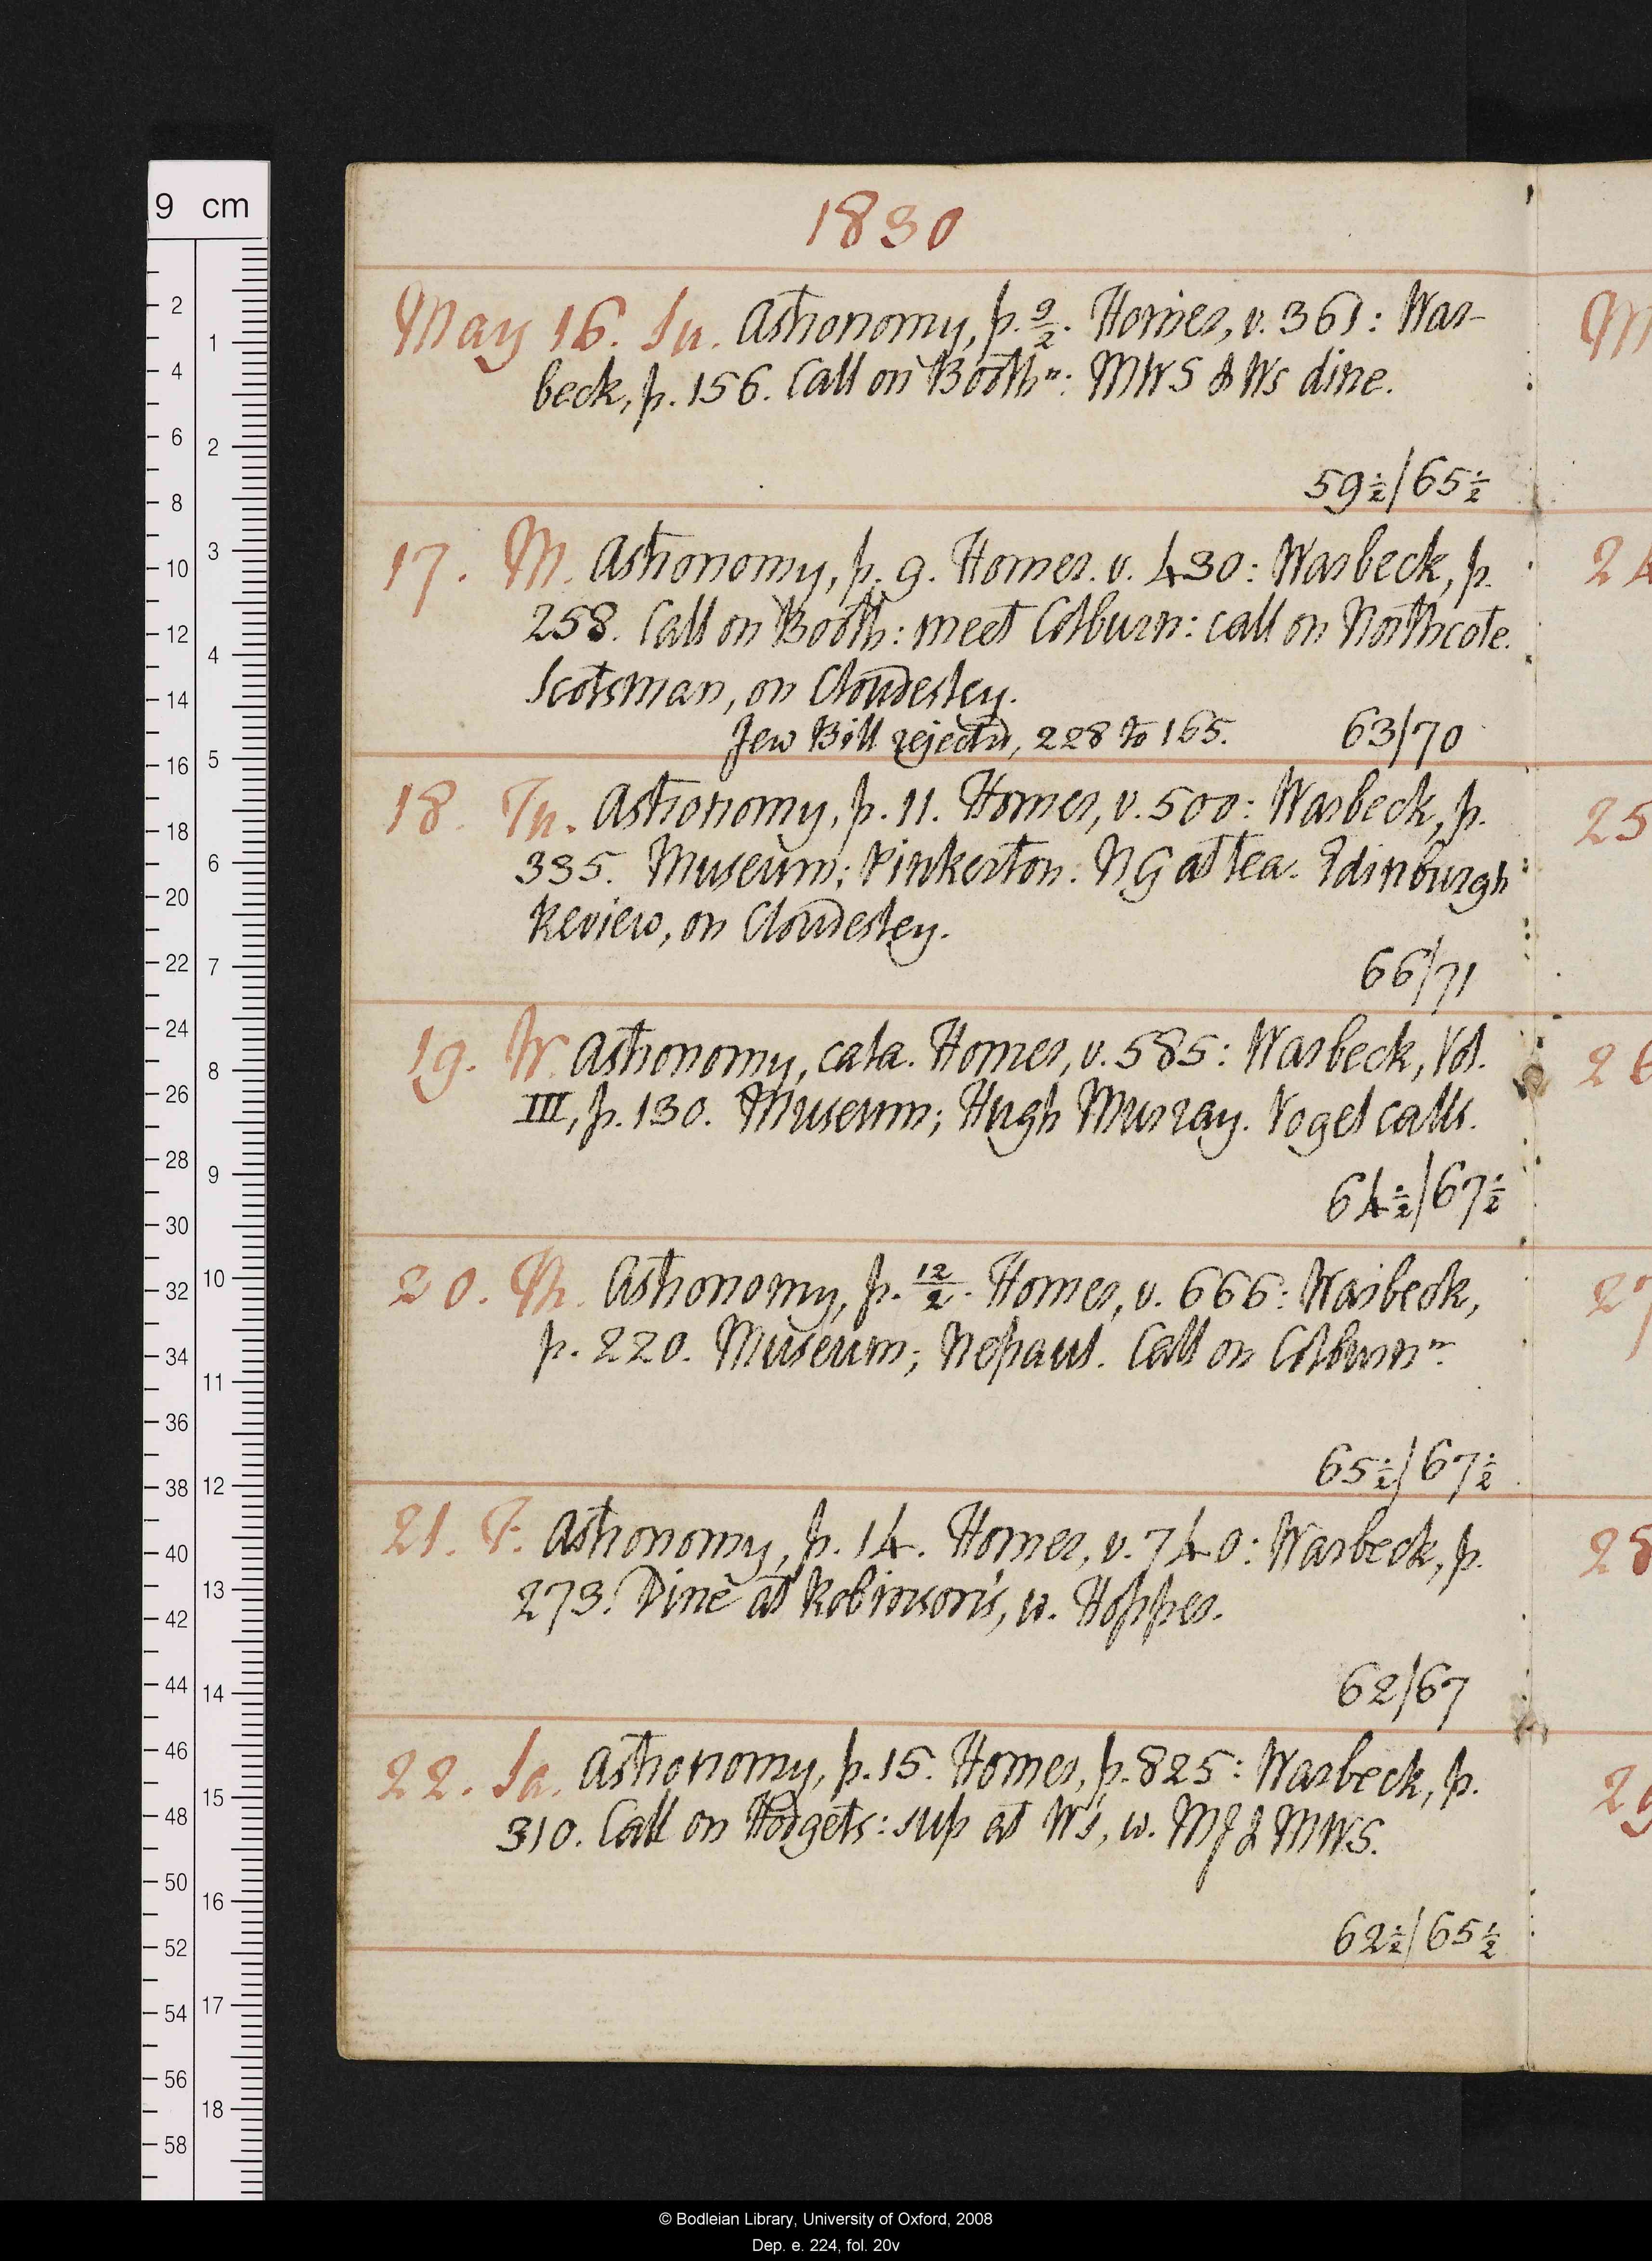 9 cm
1830
May 16. Su. Astronomy, p. 9/2. Homer, v. 361: War-
beck, p. 156. Call on Booth n: MWS & Ws dine.
59½/65½
17. M. Astronomy, p. 9. Homer. v. 430: Warbeck, p.
258. Call on Booth: meet Colburn: call on Northcote.
Scotsman, on Cloudesley.
Jew Bill rejectd, 228 to 165. 63/70
18. Tu. Astronomy, p. 11. Homer, v. 500: Warbeck, p.
335. Museum; Pinkerton: NG at tea. Edinburgh
Review, on Cloudesley.
66/71
19. W. Astronomy, cala. Homer, v. 585: Warbeck, Vol.
III, p. 130. Museum; Hugh Murray. Vogel calls.
64½/67½
20. Th. Astronomy, p. 12/2. Homer, v. 666: Warbeck,
p. 220. Museum; Nepaul. Call on Colburn n.
65½/67½
21. F. Astronomy, p. 14. Homer, v. 740: Warbeck, p.
273. Dine at Robinson's, w. Hopper.
62/67
22. Sa. Astronomy, p. 15. Homer, p. 825: Warbeck, p.
310. Call on Hodgets: sup at W's, w. MJ & MWS.
62½/65½
M
24
25
26
27
28
29
2 4 6 8 10 12 14 16 18 20 22 24 26 28 30 32 34 36 38 40 42 44 46 48 50 52 54 56 58
1 2 3 4 5 6 7 8 9 10 11 12 13 14 15 16 17 18
© Bodleian Library, University of Oxford, 2008
Dep. e. 224, fol. 20v